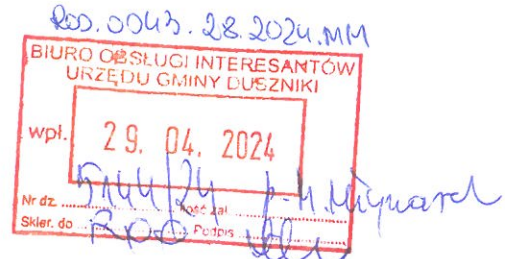 ROO.0043.28.2024.MM
BIURO OBSŁUGI INTERESANTÓW
URZĘDU GMINY DUSZNIKI
wpł. 29. 04. 2024
Nr dz. 5144/24 Ilość zał. p. M. Młynarek
Skier. do ROO Podpis